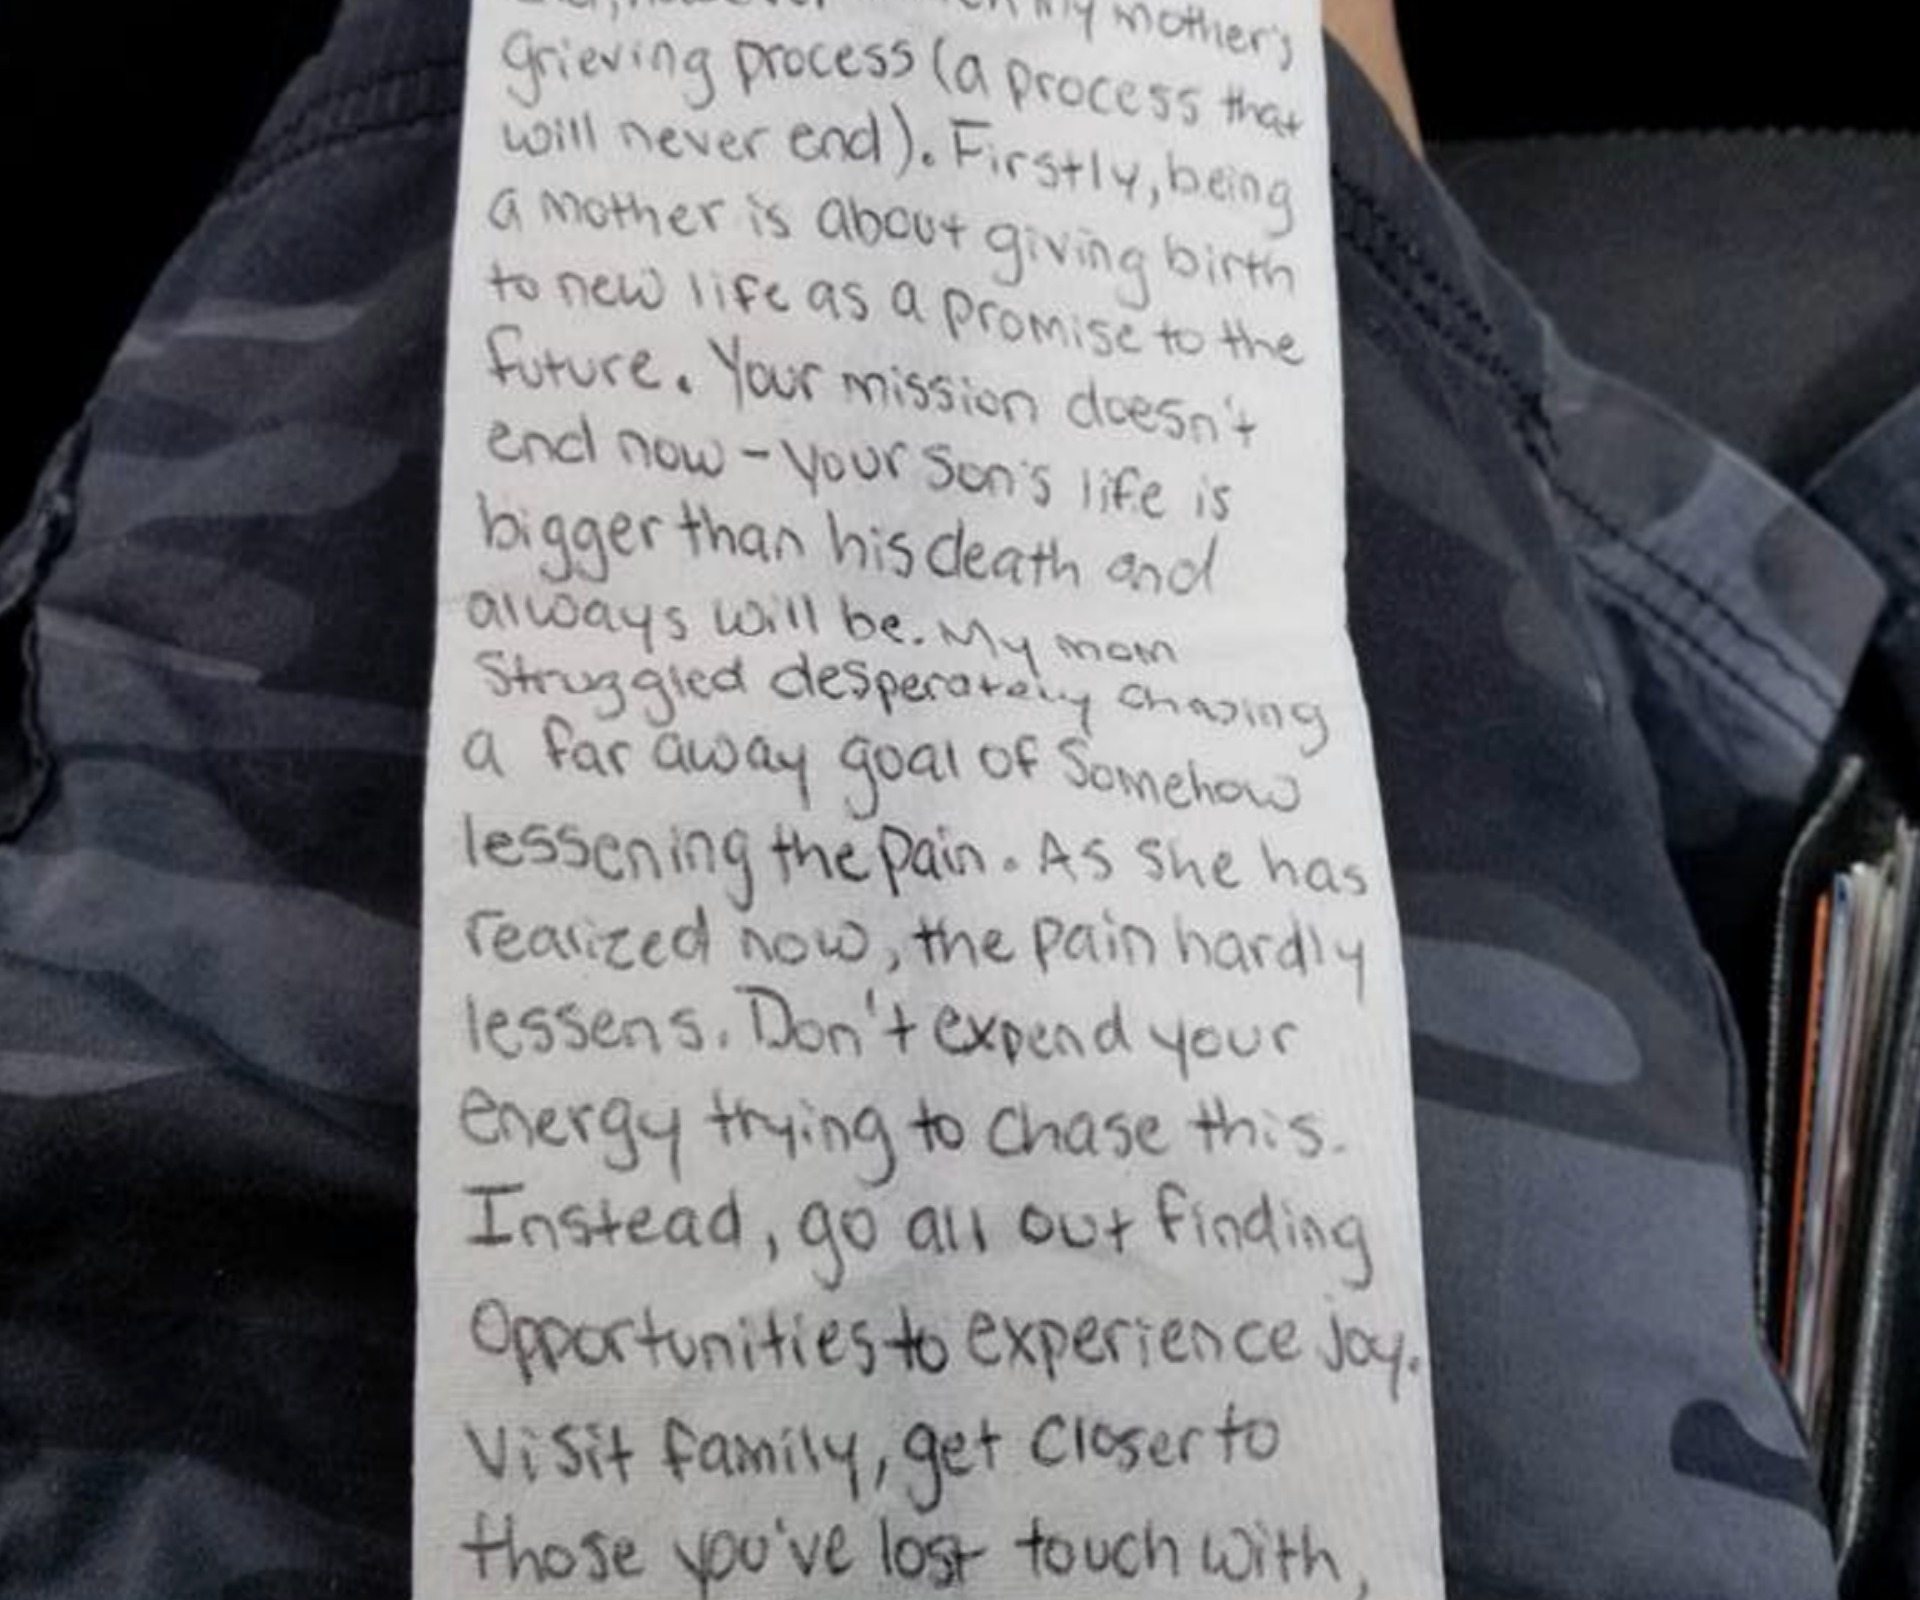 my mother's
grieving process (a process that
will never end). Firstly, being
a mother is about giving birth
to new life as a promise to the
future. Your mission doesn't
end now - your son's life is
bigger than his death and
always will be. My mom
Struggled desperately chasing
a far away goal of Somehow
lessening the pain. As she has
realized now, the pain hardly
lessens. Don't expend your
energy trying to chase this.
Instead, go all out finding
opportunities to experience joy.
Visit family, get closer to
those you've lost touch with,